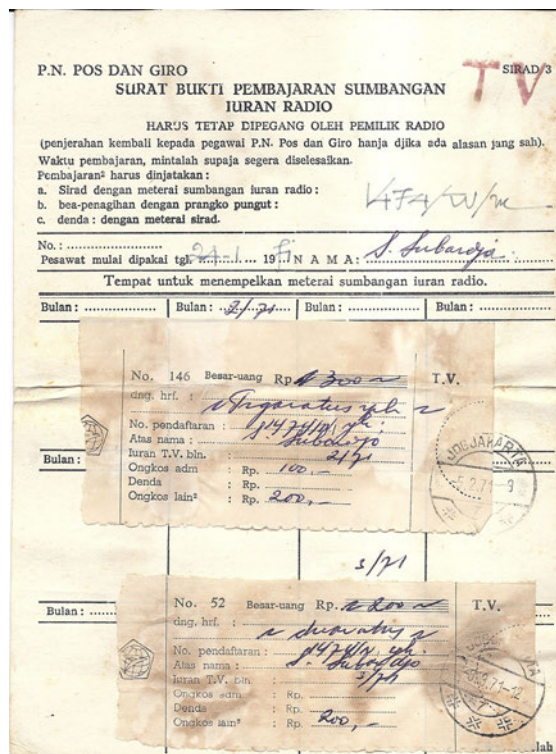 P.N. POS DAN GIRO
SIRAD 3
TV
SURAT BUKTI PEMBAJARAN SUMBANGAN
IURAN RADIO
HARUS TETAP DIPEGANG OLEH PEMILIK RADIO
(penjerahan kembali kepada pegawai P.N. Pos dan Giro hanja djika ada alasan jang sah).
Waktu pembajaran, mintalah supaja segera diselesaikan.
Pembajaran² harus dinjatakan :
a. Sirad dengan meterai sumbangan iuran radio :
b. bea-penagihan dengan prangko pungut :
c. denda : dengan meterai sirad.
No. :
Pesawat mulai dipakai tgl. 24-1 1971 NAMA : S. Subardjo
Tempat untuk menempelkan meterai sumbangan iuran radio.
Bulan : Bulan : 2/71 Bulan : Bulan :
No. 146 Besar-uang Rp. 300 T.V.
dng. hrf. : Tigaratus rph
No. pendaftaran :
Atas nama : S. Subardjo
Iuran T.V. bln. : 2/71
Ongkos adm : Rp. 100,-
Denda : Rp.
Ongkos lain² : Rp. 200,-
JOGJAKARTA
5.2.71-9
Bulan :
3/71
Bulan :
No. 52 Besar-uang Rp. 200 T.V.
dng. hrf. : duaratus
No. pendaftaran :
Atas nama : S. Subardjo
Iuran T.V. bln : 3/71
Ongkos adm : Rp.
Denda : Rp.
Ongkos lain² : Rp. 200,-